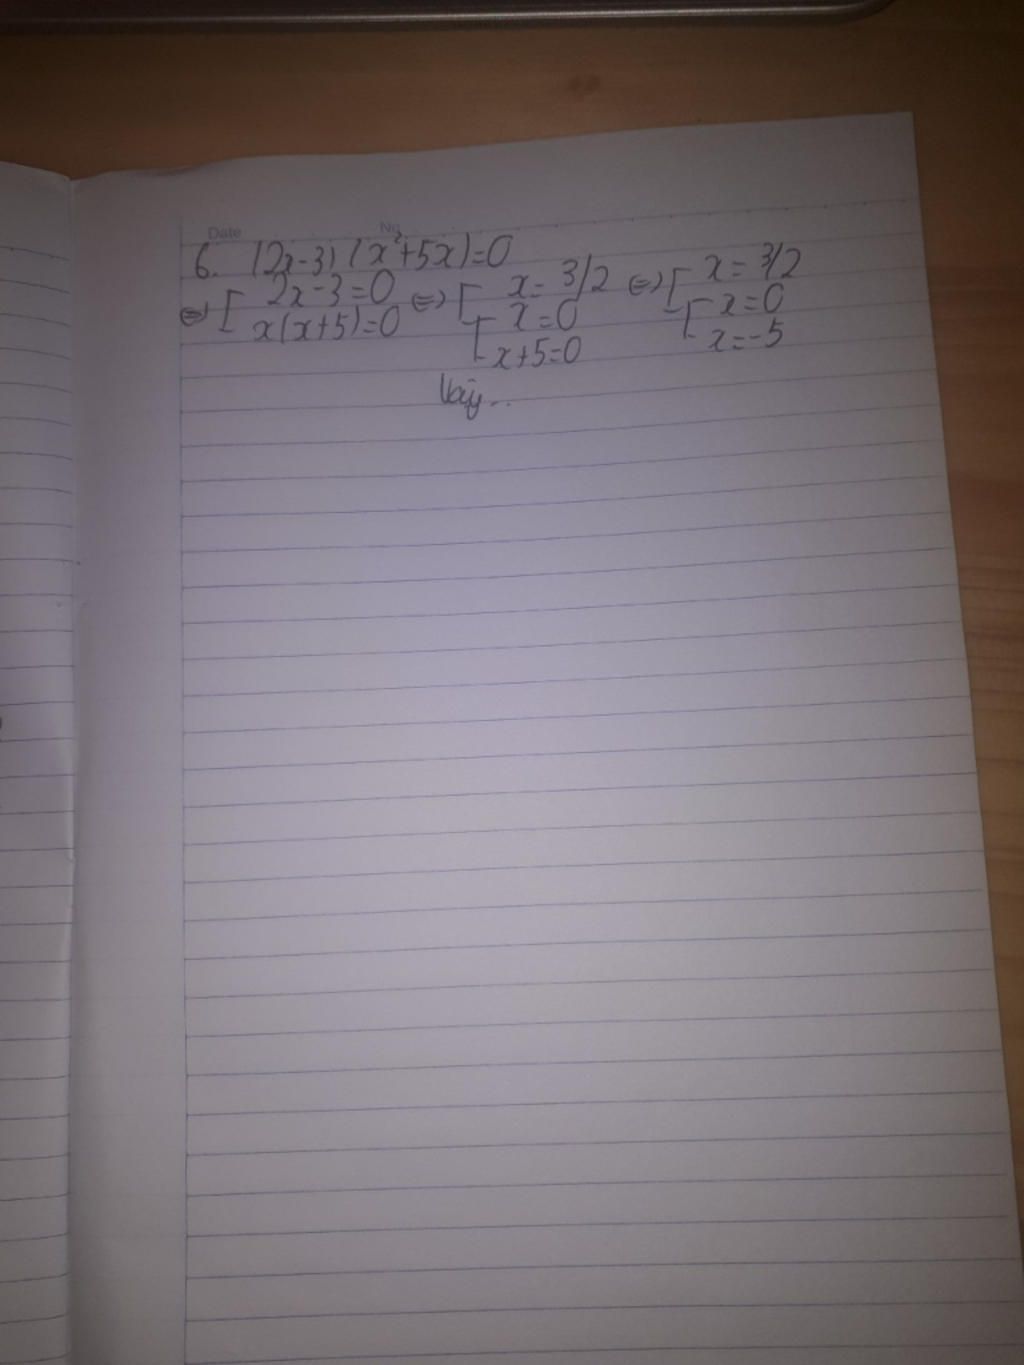 Date No
6. (2x-3)(x²+5x)=0
⇔ [ 2x-3=0 ⇔ [ x=3/2 ⇔ [ x=3/2
x(x+5)=0 [ x=0 [ x=0
x+5=0 x=-5
Vậy...